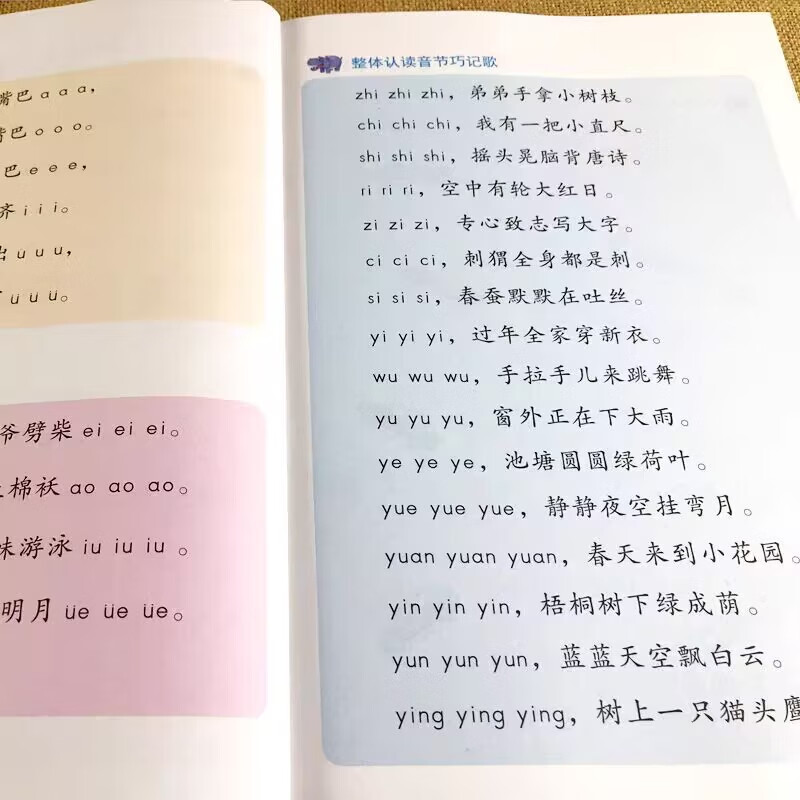 嘴巴 a a a，
嘴巴 o o o。
巴 e e e，
齐 i i i。
出 u u u，
ü ü ü。
爷劈柴 ei ei ei。
棉袄 ao ao ao。
游泳 iu iu iu 。
明月 üe üe üe。
整体认读音节巧记歌
zhi zhi zhi，弟弟手拿小树枝。
chi chi chi，我有一把小直尺。
shi shi shi，摇头晃脑背唐诗。
ri ri ri，空中有轮大红日。
zi zi zi，专心致志写大字。
ci ci ci，刺猬全身都是刺。
si si si，春蚕默默在吐丝。
yi yi yi，过年全家穿新衣。
wu wu wu，手拉手儿来跳舞。
yu yu yu，窗外正在下大雨。
ye ye ye，池塘圆圆绿荷叶。
yue yue yue，静静夜空挂弯月。
yuan yuan yuan，春天来到小花园。
yin yin yin，梧桐树下绿成荫。
yun yun yun，蓝蓝天空飘白云。
ying ying ying，树上一只猫头鹰